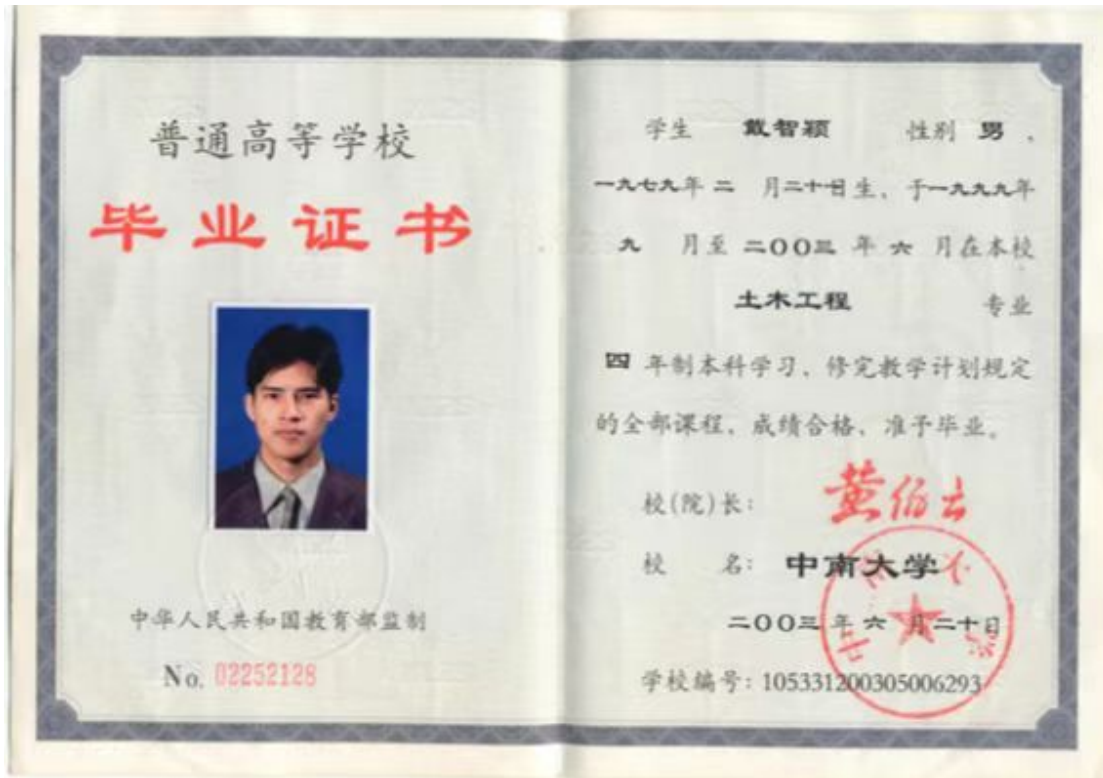 普通高等学校
毕业证书
中华人民共和国教育部监制
No. 02252128
学生 戴智颖 性别 男，
一九七九年 二 月二十日生、于一九九九年
九 月至 二〇〇三 年 六 月在本校
土木工程 专业
四 年制本科学习、修完教学计划规定
的全部课程、成绩合格、准予毕业。
校(院)长: 黄伯云
校 名: 中南大学
二〇〇三 年 六 月二十日
学校编号: 105331200305006293